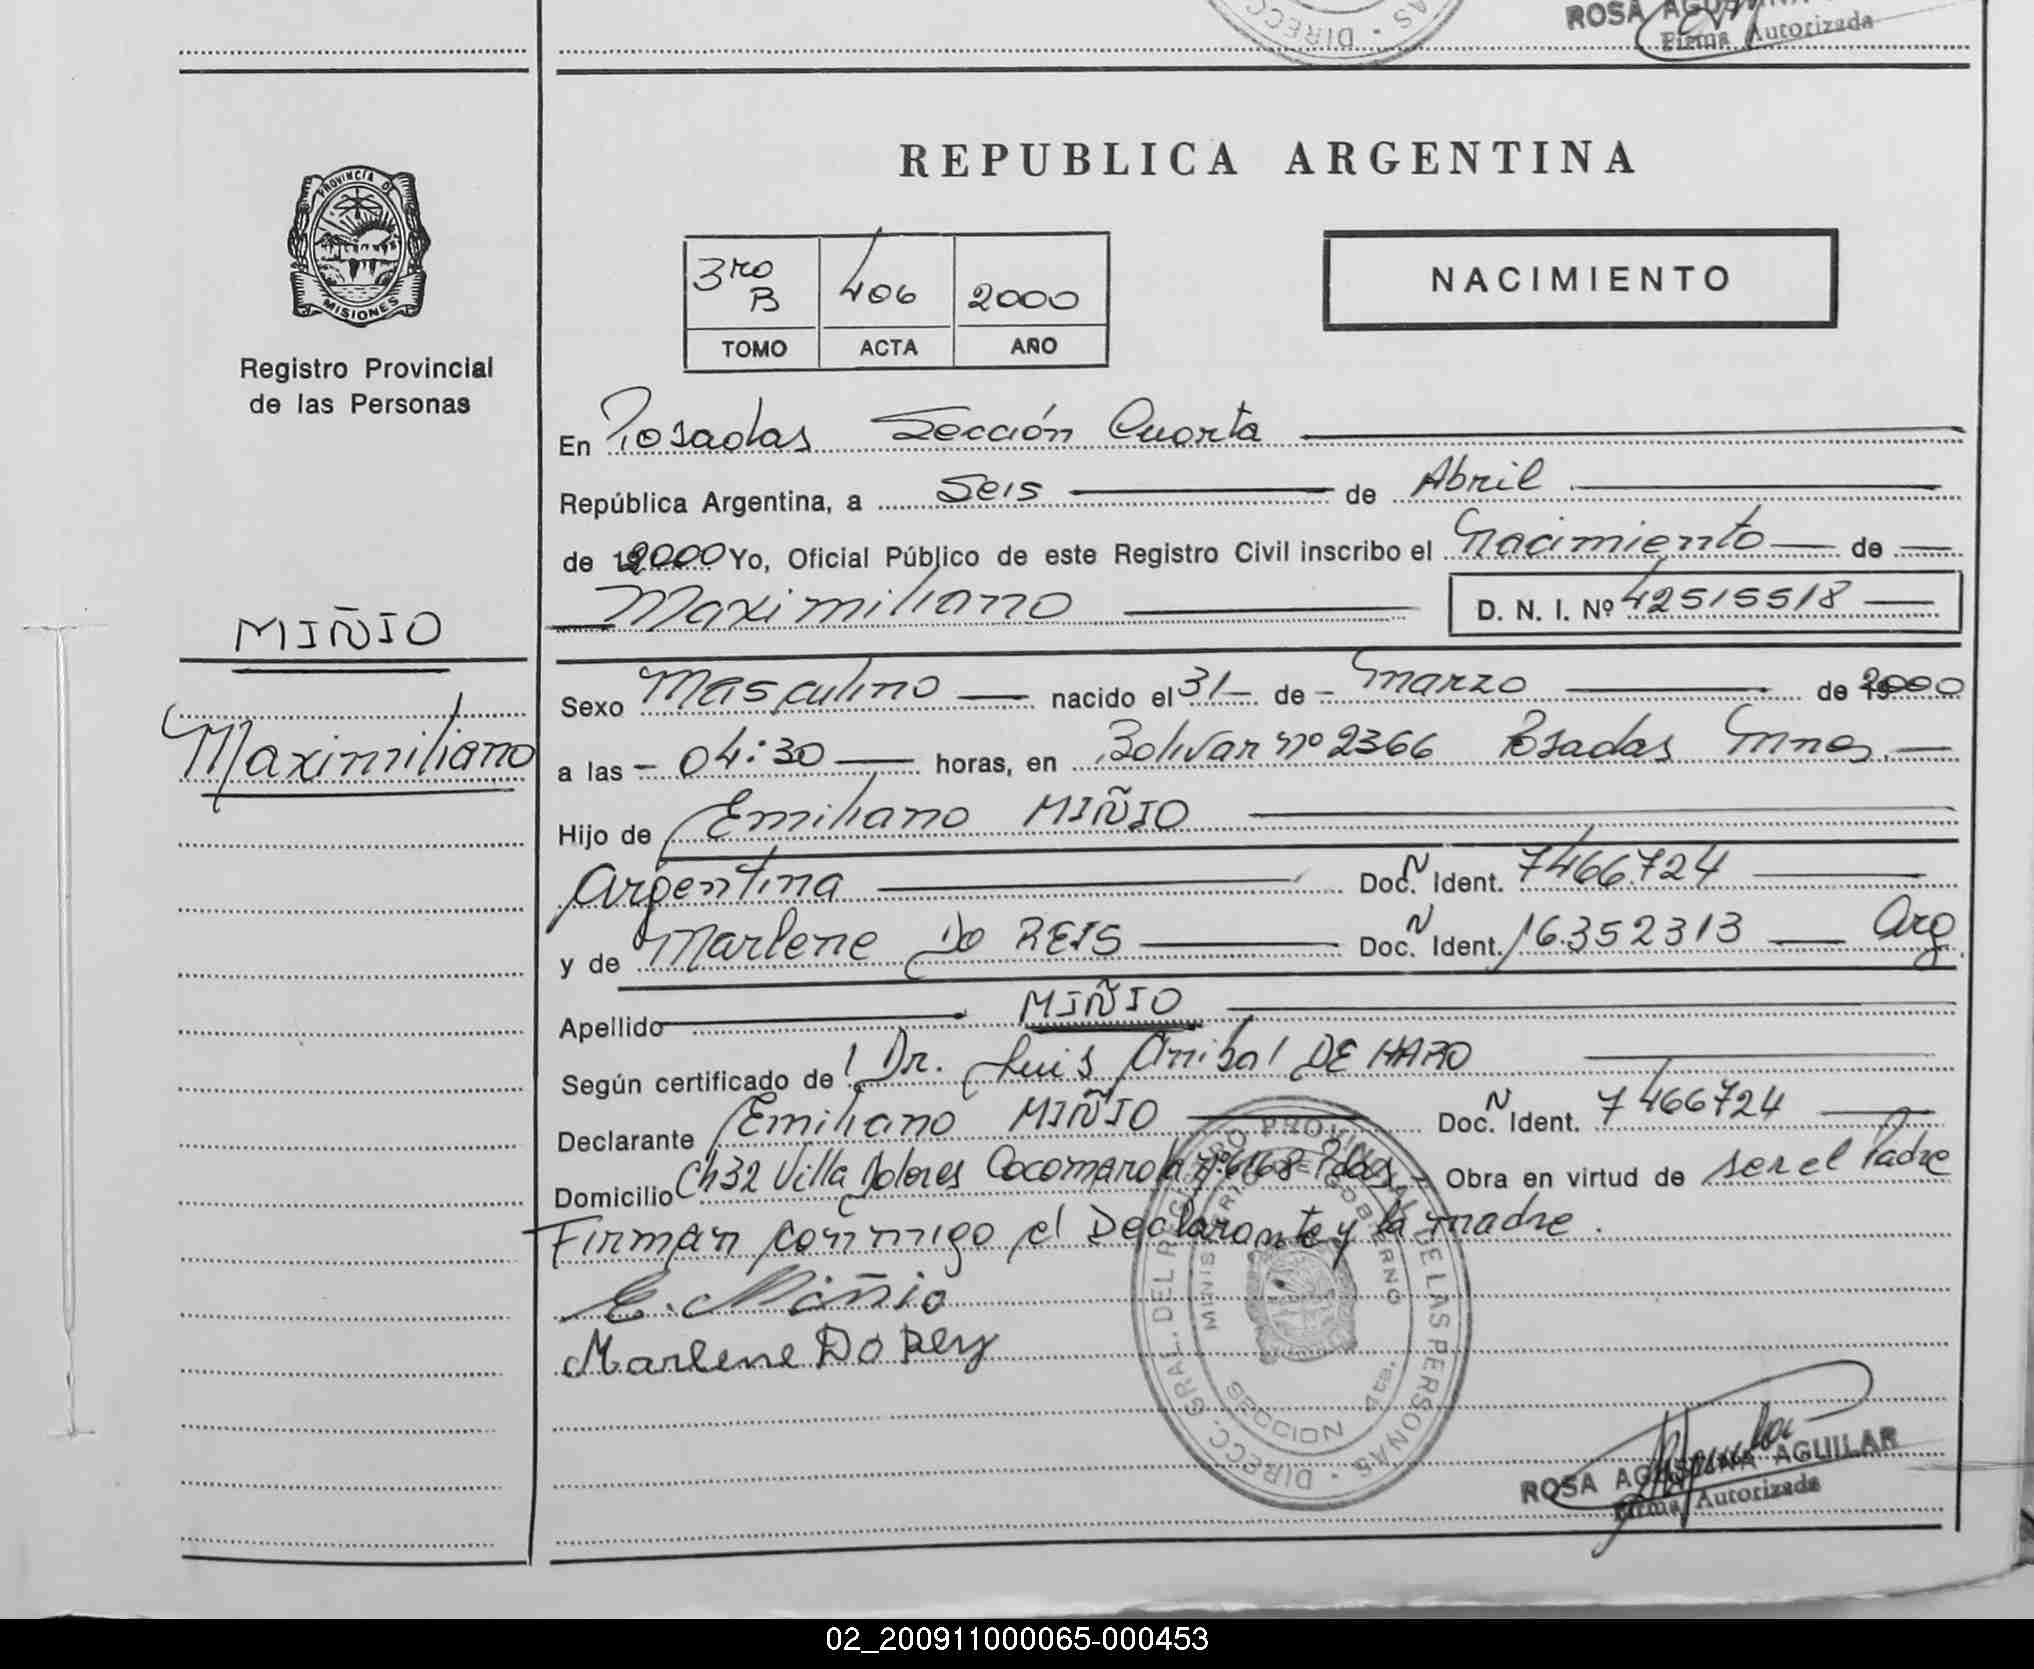 ROSA
Firma Autorizada
REPUBLICA ARGENTINA
PROVINCIA DE
MISIONES
Registro Provincial
de las Personas
3ro B 406 2000
TOMO ACTA AÑO
NACIMIENTO
En Posadas Sección Cuarta
República Argentina, a Seis de Abril
de 192000 Yo, Oficial Público de este Registro Civil inscribo el Nacimiento de
Maximiliano D. N. I. Nº 42515518
MIÑIO
Maximiliano
Sexo Masculino nacido el 31 de Marzo de 2000
a las 04:30 horas, en Bolivar nº 2366 Posadas Mnes.
Hijo de Emiliano MIÑIO
Argentina Doc. N Ident. 7466724
y de Marlene Do REIS Doc. N Ident. 16.352313 Arg.
Apellido MIÑIO
Según certificado del Dr. Luis Anibal DE HARO
Declarante Emiliano MIÑIO Doc. N Ident. 7466724
Domicilio Ch 32 Villa Dolores Cocomarola nº 6168 Pdas. Obra en virtud de ser el Padre
Firman conmigo el Declarante y la madre.
E. Miñio
Marlene Do Rey
DIRECC. GRAL. DEL REGISTRO PROVINCIAL DE LAS PERSONAS
MINISTERIO DE GOBIERNO
SECCION 4ta.
ROSA AGUSTINA AGUILAR
Firma Autorizada
02_200911000065-000453